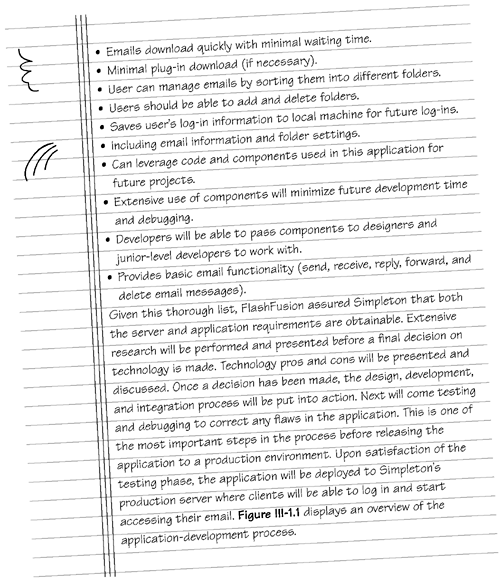 • Emails download quickly with minimal waiting time.
• Minimal plug-in download (if necessary).
• User can manage emails by sorting them into different folders.
• Users should be able to add and delete folders.
• Saves user's log-in information to local machine for future log-ins,
• including email information and folder settings.
• Can leverage code and components used in this application for
future projects.
• Extensive use of components will minimize future development time
and debugging.
• Developers will be able to pass components to designers and
junior-level developers to work with.
• Provides basic email functionality (send, receive, reply, forward, and
delete email messages).
Given this thorough list, FlashFusion assured Simpleton that both
the server and application requirements are obtainable. Extensive
research will be performed and presented before a final decision on
technology is made. Technology pros and cons will be presented and
discussed. Once a decision has been made, the design, development,
and integration process will be put into action. Next will come testing
and debugging to correct any flaws in the application. This is one of
the most important steps in the process before releasing the
application to a production environment. Upon satisfaction of the
testing phase, the application will be deployed to Simpleton's
production server where clients will be able to log in and start
accessing their email. Figure III-1.1 displays an overview of the
application-development process.